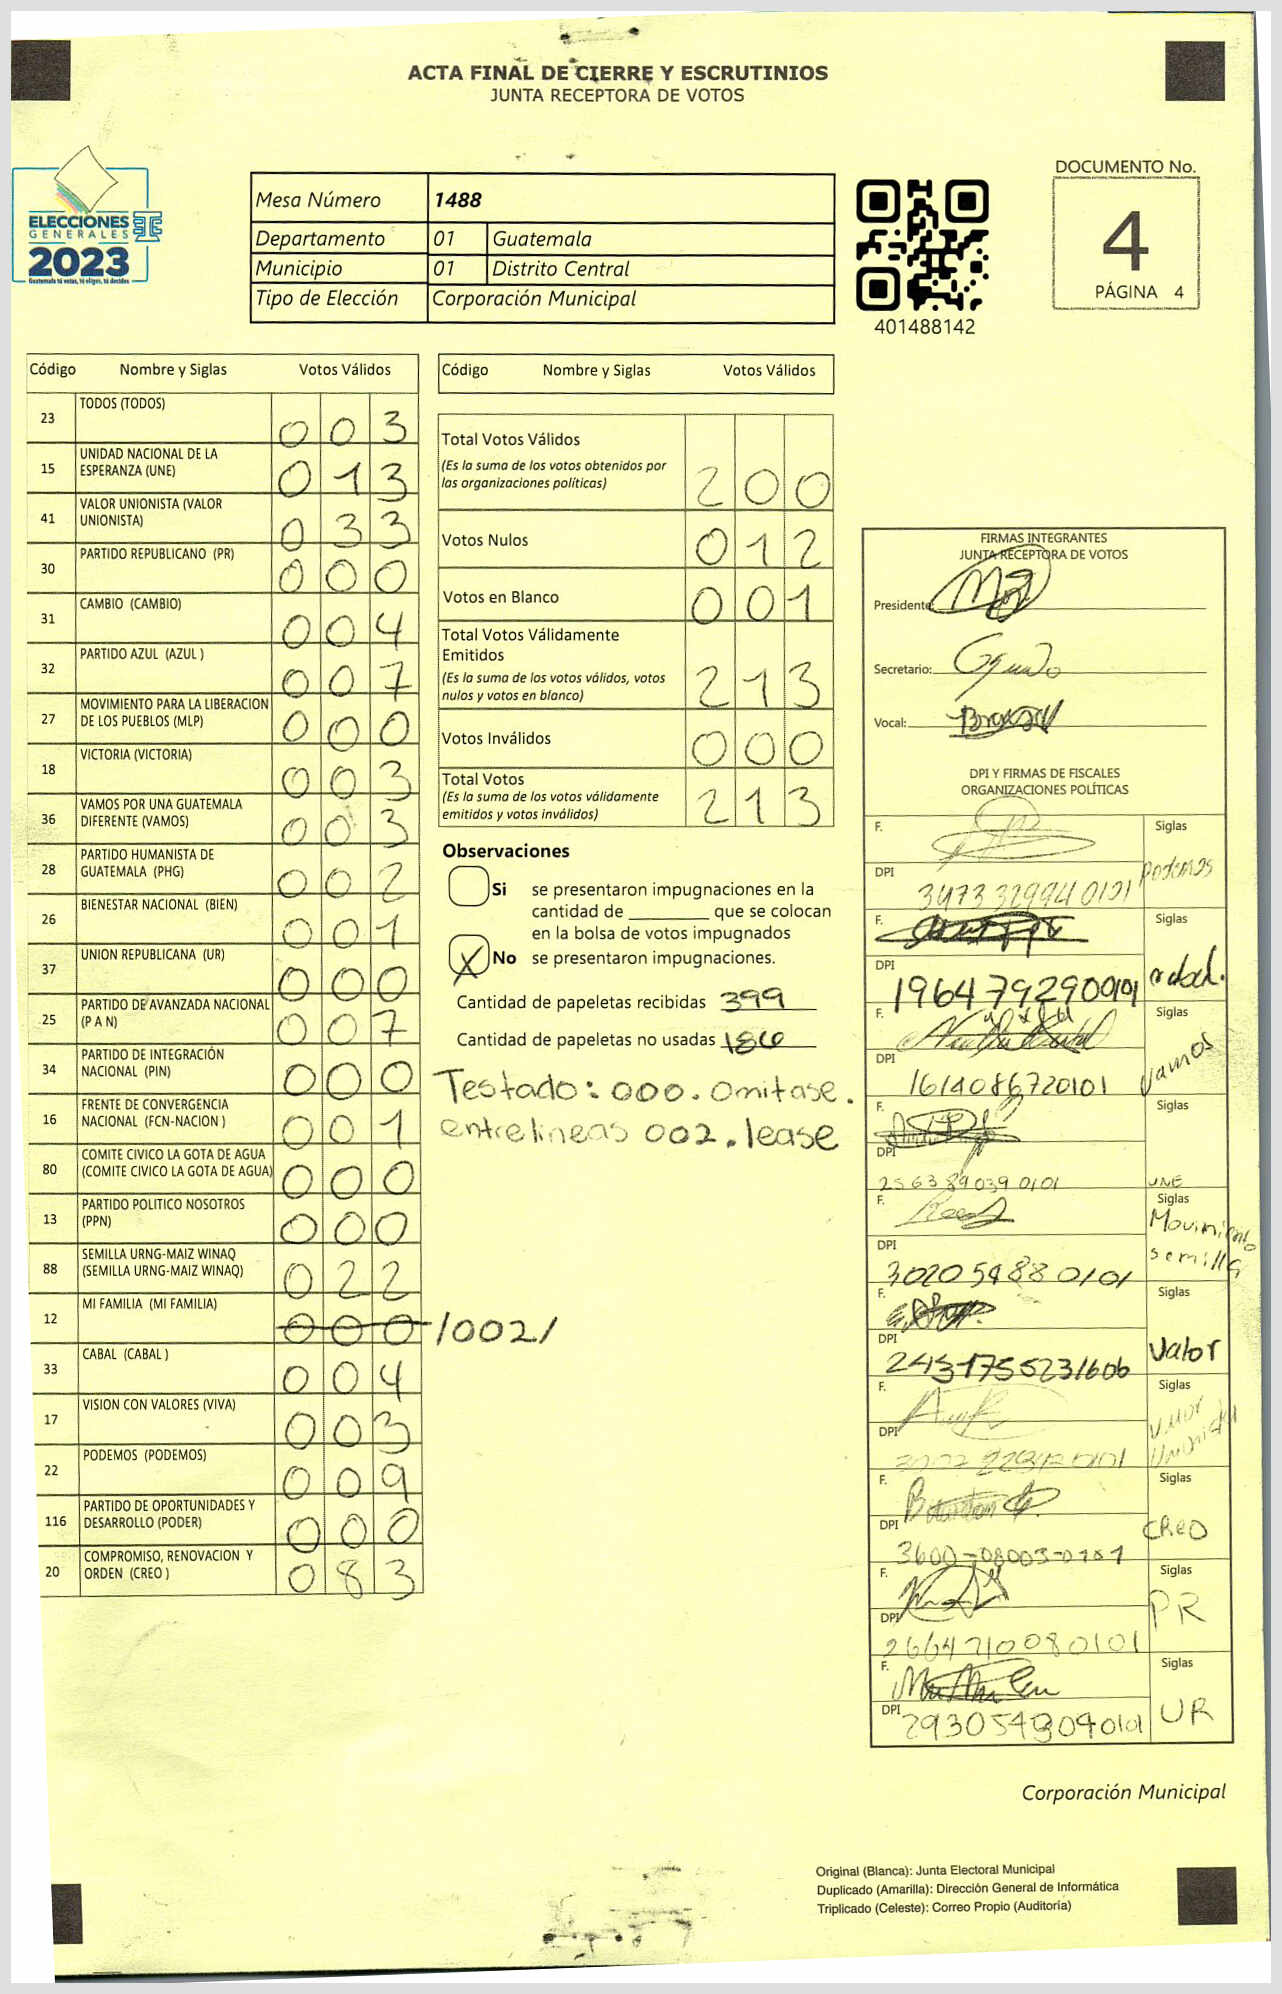 ACTA FINAL DE CIERRE Y ESCRUTINIOS
JUNTA RECEPTORA DE VOTOS
ELECCIONES
GENERALES
2023
Guatemala tú votas, tú eliges, tú decides
Mesa Número 1488
Departamento 01 Guatemala
Municipio 01 Distrito Central
Tipo de Elección Corporación Municipal
401488142
DOCUMENTO No.
4
PÁGINA 4
Código Nombre y Siglas Votos Válidos
23 TODOS (TODOS) 003
15 UNIDAD NACIONAL DE LA
ESPERANZA (UNE) 013
41 VALOR UNIONISTA (VALOR
UNIONISTA) 033
30 PARTIDO REPUBLICANO (PR) 000
31 CAMBIO (CAMBIO) 004
32 PARTIDO AZUL (AZUL ) 007
27 MOVIMIENTO PARA LA LIBERACION
DE LOS PUEBLOS (MLP) 000
18 VICTORIA (VICTORIA) 003
36 VAMOS POR UNA GUATEMALA
DIFERENTE (VAMOS) 003
28 PARTIDO HUMANISTA DE
GUATEMALA (PHG) 002
26 BIENESTAR NACIONAL (BIEN) 001
37 UNION REPUBLICANA (UR) 000
25 PARTIDO DE AVANZADA NACIONAL
(P A N) 007
34 PARTIDO DE INTEGRACIÓN
NACIONAL (PIN) 000
16 FRENTE DE CONVERGENCIA
NACIONAL (FCN-NACION ) 001
80 COMITE CIVICO LA GOTA DE AGUA
(COMITE CIVICO LA GOTA DE AGUA) 000
13 PARTIDO POLITICO NOSOTROS
(PPN) 000
88 SEMILLA URNG-MAIZ WINAQ
(SEMILLA URNG-MAIZ WINAQ) 022
12 MI FAMILIA (MI FAMILIA) 000 /002/
33 CABAL (CABAL ) 004
17 VISION CON VALORES (VIVA) 003
22 PODEMOS (PODEMOS) 009
116 PARTIDO DE OPORTUNIDADES Y
DESARROLLO (PODER) 000
20 COMPROMISO, RENOVACION Y
ORDEN (CREO ) 083
Código Nombre y Siglas Votos Válidos
Total Votos Válidos
(Es la suma de los votos obtenidos por
las organizaciones políticas) 200
Votos Nulos 012
Votos en Blanco 001
Total Votos Válidamente
Emitidos
(Es la suma de los votos válidos, votos
nulos y votos en blanco) 213
Votos Inválidos 000
Total Votos
(Es la suma de los votos válidamente
emitidos y votos inválidos) 213
Observaciones
Si se presentaron impugnaciones en la
cantidad de ________ que se colocan
en la bolsa de votos impugnados
X No se presentaron impugnaciones.
Cantidad de papeletas recibidas 399
Cantidad de papeletas no usadas 186
Testado: 000. Omitase.
entrelineas 002. lease
FIRMAS INTEGRANTES
JUNTA RECEPTORA DE VOTOS
Presidente:
Secretario:
Vocal:
DPI Y FIRMAS DE FISCALES
ORGANIZACIONES POLÍTICAS
F. Siglas
DPI Podemos
3473 32994 0101
F. Siglas
DPI
1964 79290 0101
F. Siglas
DPI Vamos
1614086720101
F. Siglas
DPI
2563 89039 0101 UNE
F. Siglas
Movimiento
DPI semilla
30205988 0101
F. Siglas
DPI Valor
2431755231606
F. Siglas
DPI Valor
Unionista
F. Siglas
DPI CREO
3600-08003-0101
F. Siglas
DPI PR
2664710080101
F. Siglas
DPI UR
2930549040101
Corporación Municipal
Original (Blanca): Junta Electoral Municipal
Duplicado (Amarilla): Dirección General de Informática
Triplicado (Celeste): Correo Propio (Auditoría)